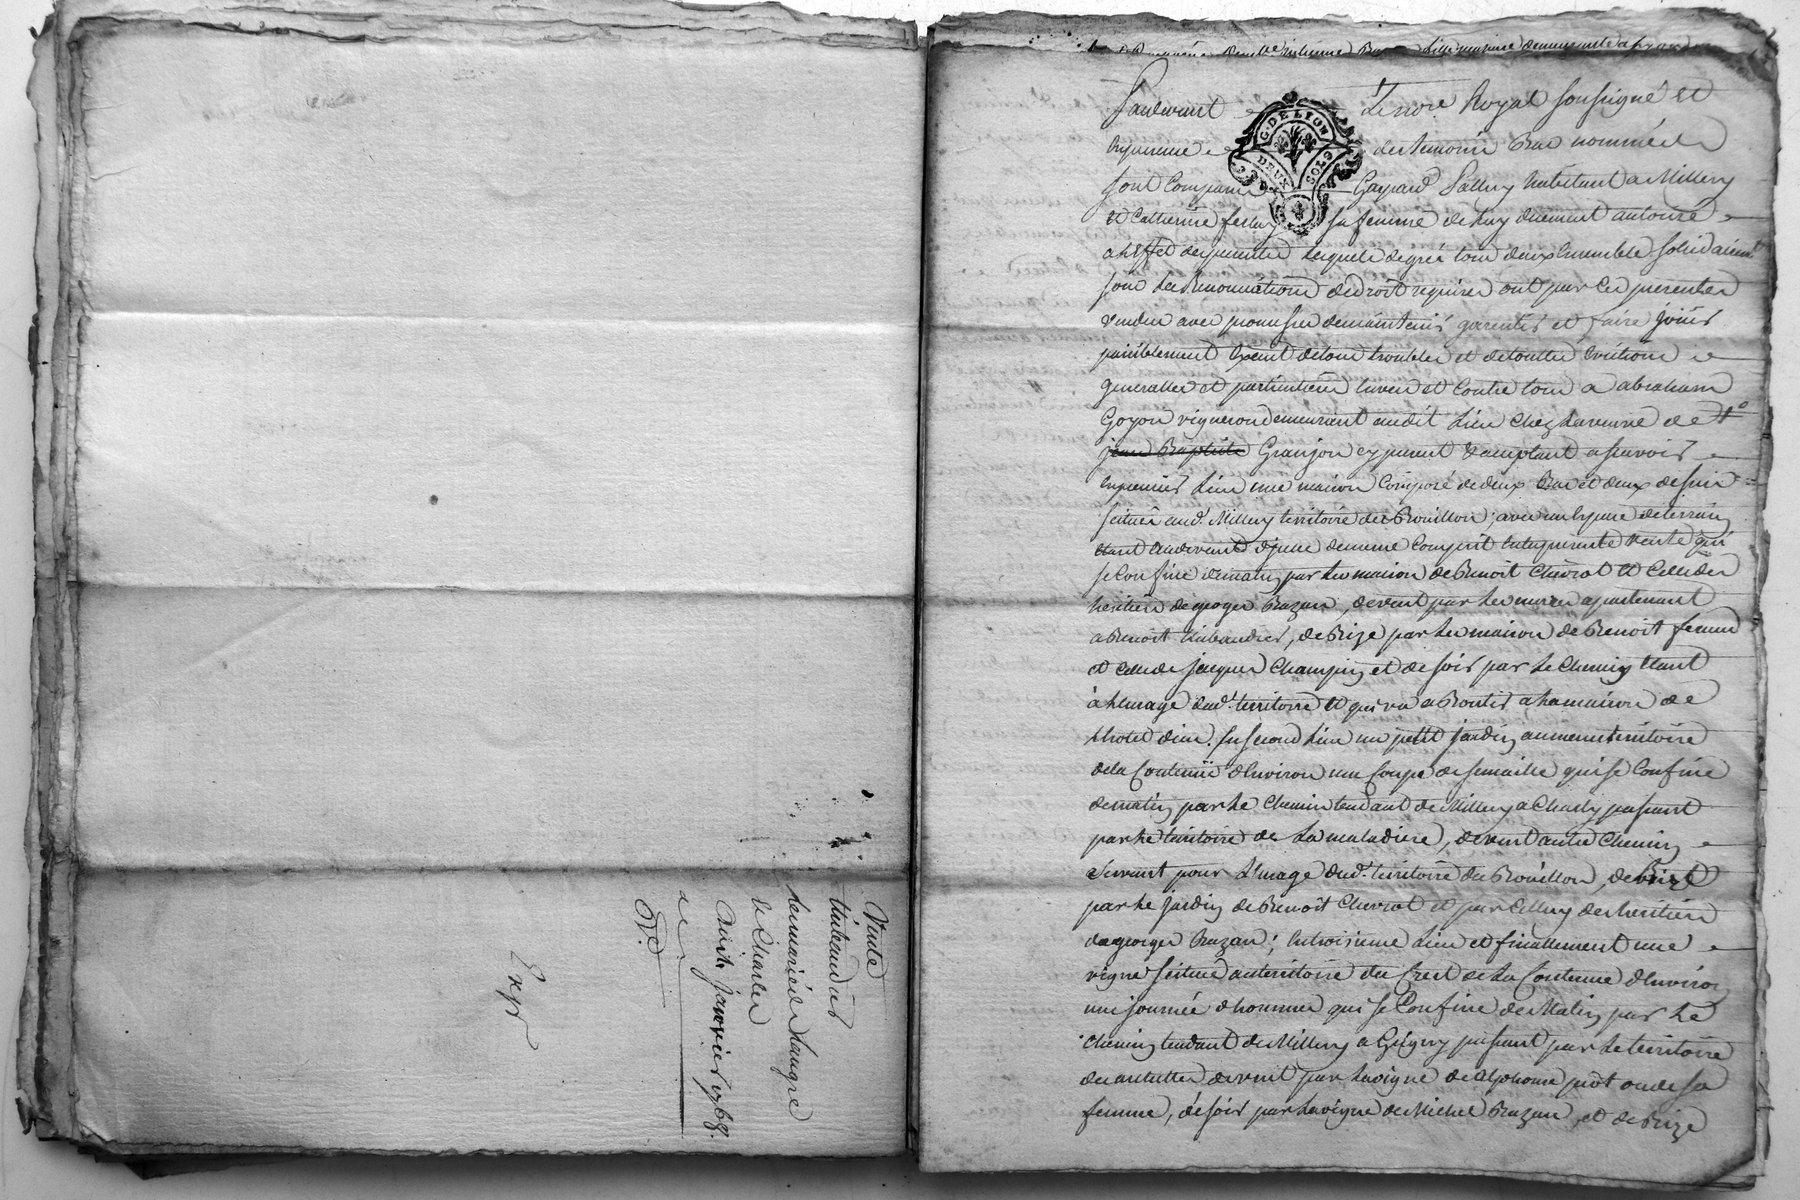 Vente
thibaudier
les mariés Laugre
de Charles
Du 18 Janvier 1768.
Exp.
G. DE LION
DEUX SOLS
Pardevant Le no.re Royal soussigné et
en presence des temoins Bas nommés
sont comparus Gaspard habitant a Millery
et Catherine sa femme de luy duement autorisé
a l'effet des presentes lesquels de gré tous deux ensemble solidairement
sous les Renonciations de droit requises ont par ces presentes
vendu avec promesse de maintenir garentir et faire joüir
paisiblement exent de tous troubles et de touttes evictions
generalles et particulieres envers et contre tous a abraham
Goyon vigneron demeurant audit Lieu chez la veuve de
jean Baptiste Granjon cy present acceptant a sçavoir
en premier Lieu une maison composé de deux Bas et deux dessus
scituée aud.t Millery territoire du Brouillon, avec un espace de terrein
etant au devant d'jcelle de meme compris en la presente vente qui
se confine de matin par la maison de Benoit Chevrot et celle des
heritiers de george Bazan, de vent par les murs apartenant
a Benoit thibaudier, de Bize par la maison de Benoit
et celle de jacques Champin et de soir par le chemin etant
à l'usage dud.t territoire et qui va aboutir a la maison de
l'hotel dieu. En second Lieu un petit jardin au meme territoire
de la Contenüe d'environ une Coupe de semaille qui se confine
de matin par le chemin tendant de Millery a Charly passant
par le territoire de La maladiere, de vent autre chemin
servant pour l'usage dud.t territoire du Brouillon, de Bize
par le jardin de Benoit Chevrot et par celluy des heritiers
de george Bazan; en troisieme Lieu et finallement une
vigne scituée au territoire du Crest de la Contenue d'environ
une journée d'homme qui se confine de Matin par le
chemin tendant de Millery a Grigny passant par le territoire
des de vent par la vigne de alphonse piot ou de sa
femme, de soir par la vigne de Michel Bazan et de Bize